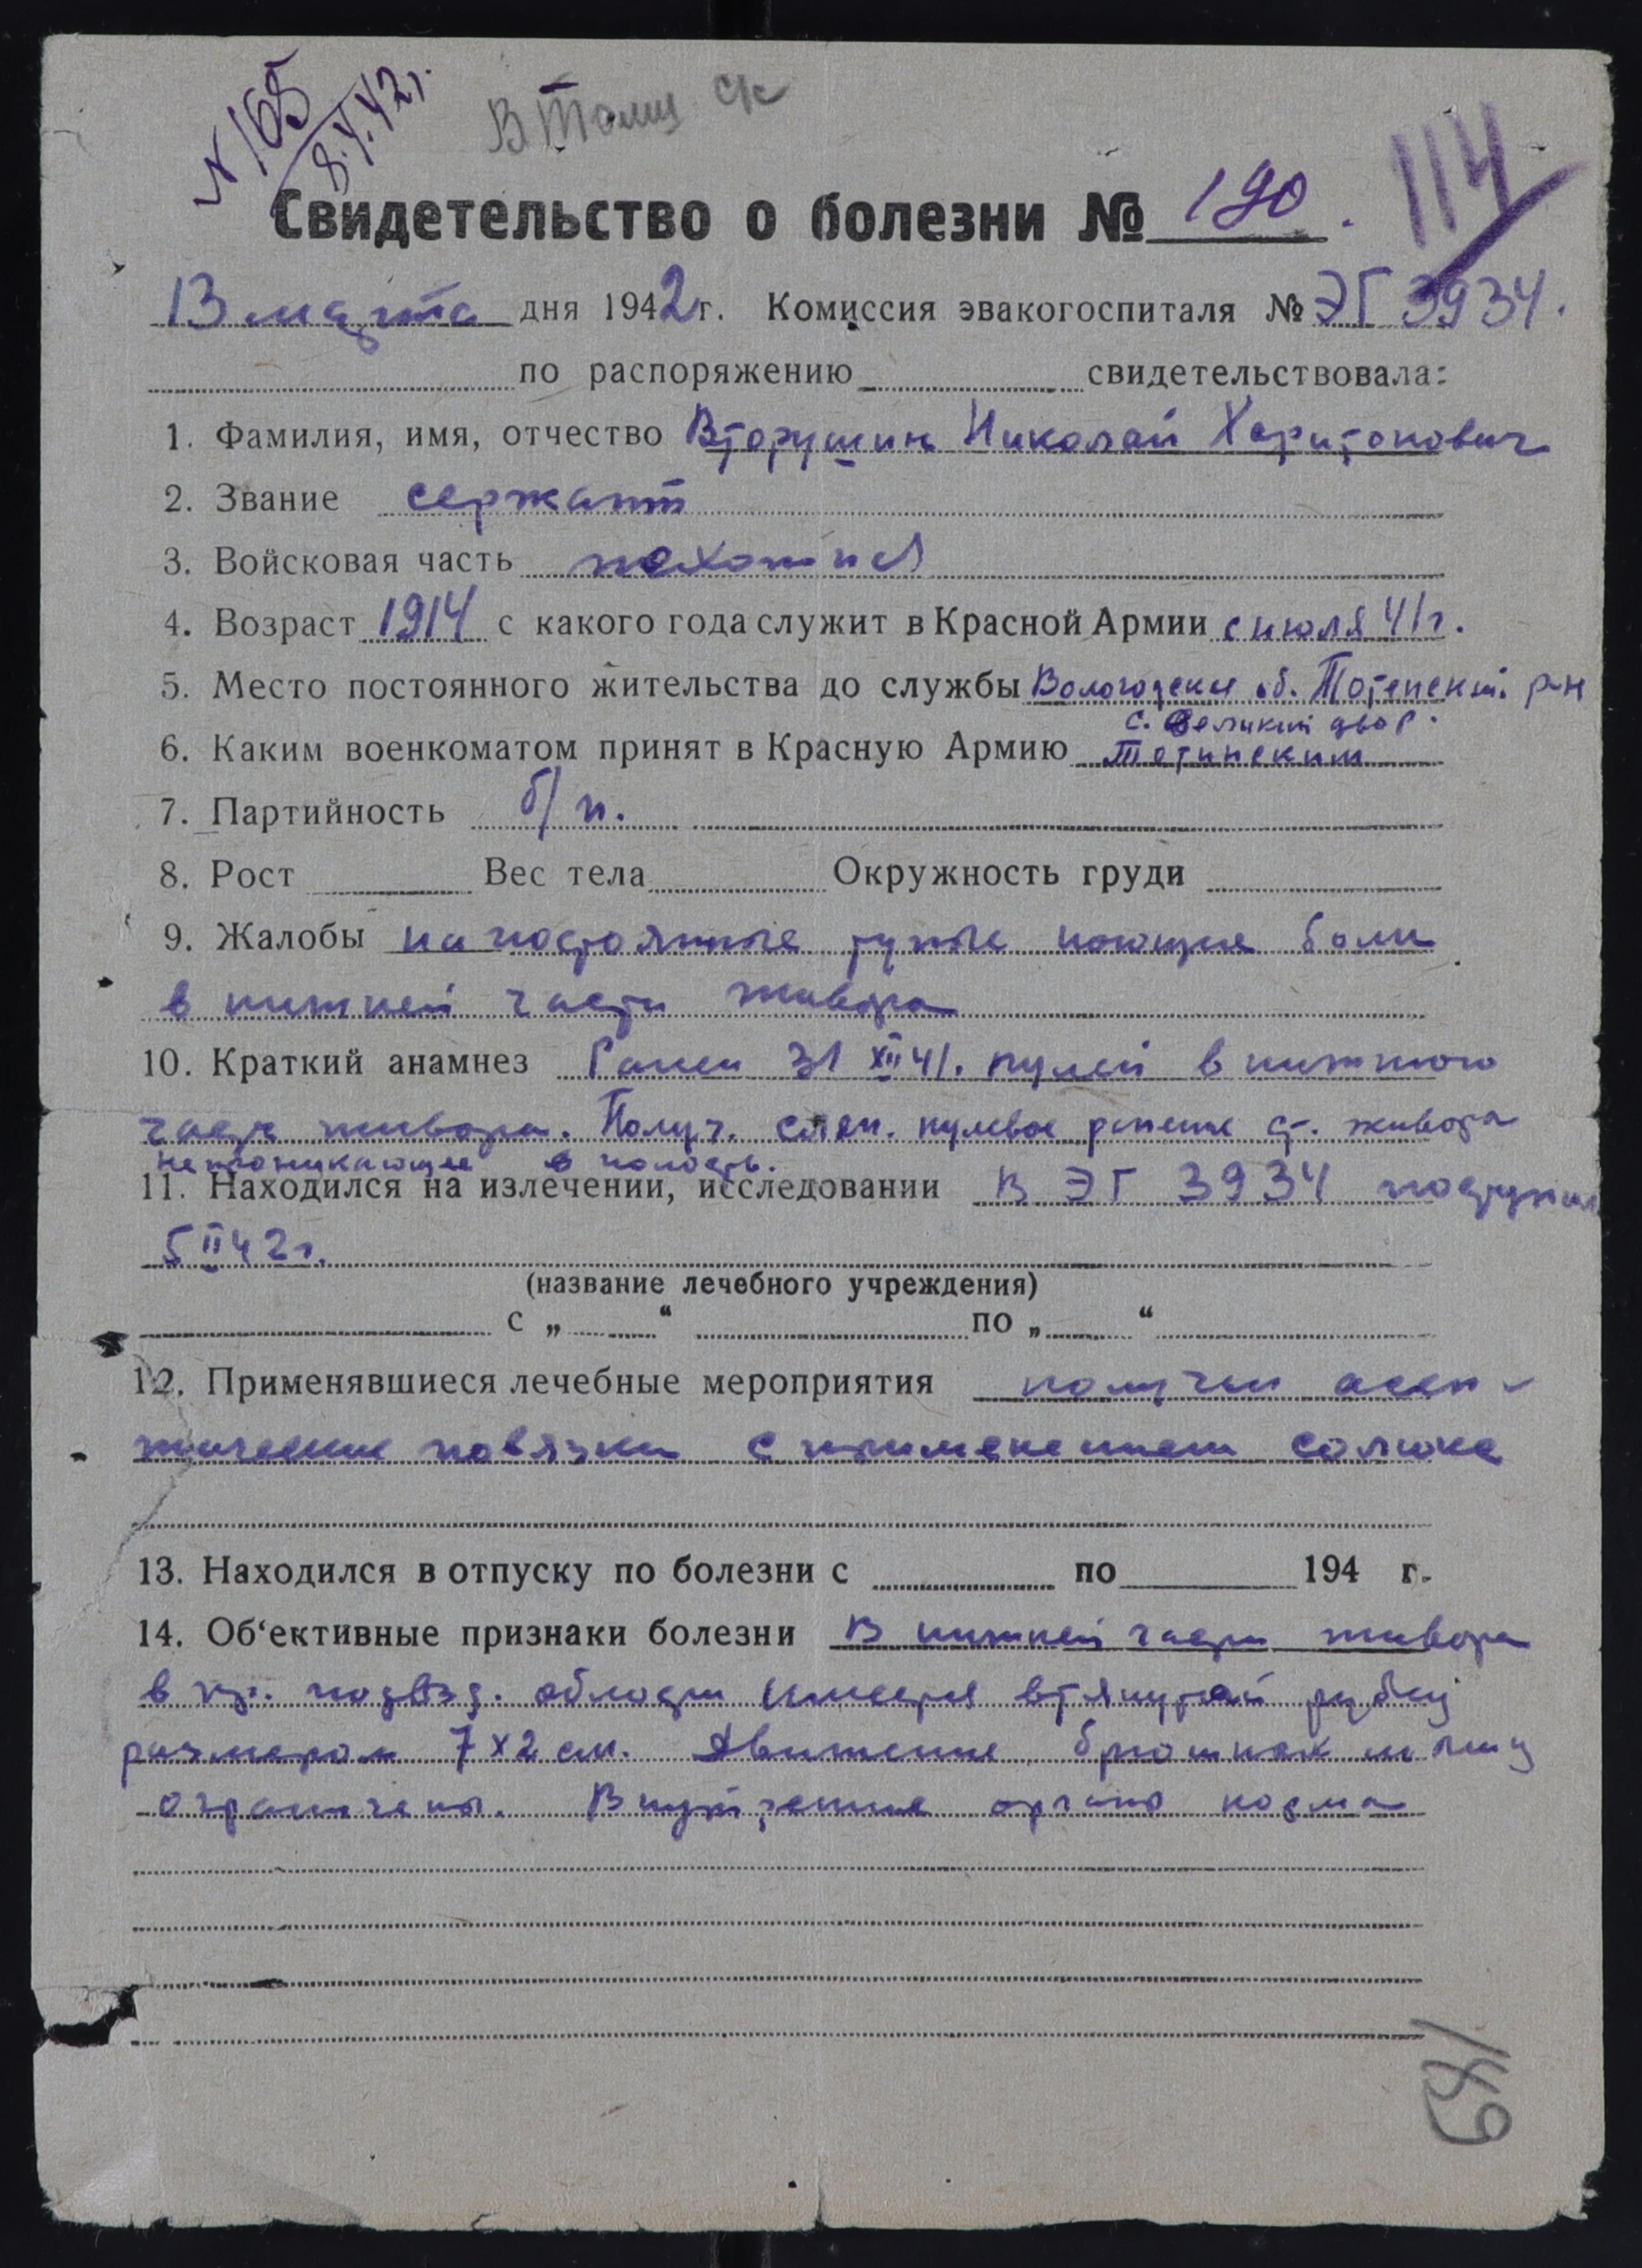 N 165
8.V.42г.
Свидетельство о болезни № 190.
114
13 марта дня 1942г. Комиссия эвакогоспиталя № ЭГ 3934.
по распоряжению свидетельствовала:
1. Фамилия, имя, отчество Вторушин Николай Харитонович
2. Звание сержант
3. Войсковая часть пехотная
4. Возраст 1914 с какого года служит в Красной Армии с июля 41г.
5. Место постоянного жительства до службы Вологодская об. Тотемский р-н
с. Великий двор.
6. Каким военкоматом принят в Красную Армию Тотемским
7. Партийность б/п.
8. Рост Вес тела Окружность груди
9. Жалобы на постоянные тупые ноющие боли
в нижней части живота
10. Краткий анамнез Ранен 31 XII 41. пулей в нижнюю
часть живота. Получ. слеп. пулевое ранение ст. живота
непроникающее в полость.
11. Находился на излечении, исследовании В ЭГ 3934 поступил
5 II 42г.
(название лечебного учреждения)
с „ “ по „ “
12. Применявшиеся лечебные мероприятия получал асеп-
тические повязки с применением солюкс
13. Находился в отпуску по болезни с по 194 г.
14. Об‘ективные признаки болезни В нижней части живота
в пр. подвзд. области имеется втянутый рубец
размером 7х2 см. Движение брюшных мышц
ограничены. Внутренние органы норма
189